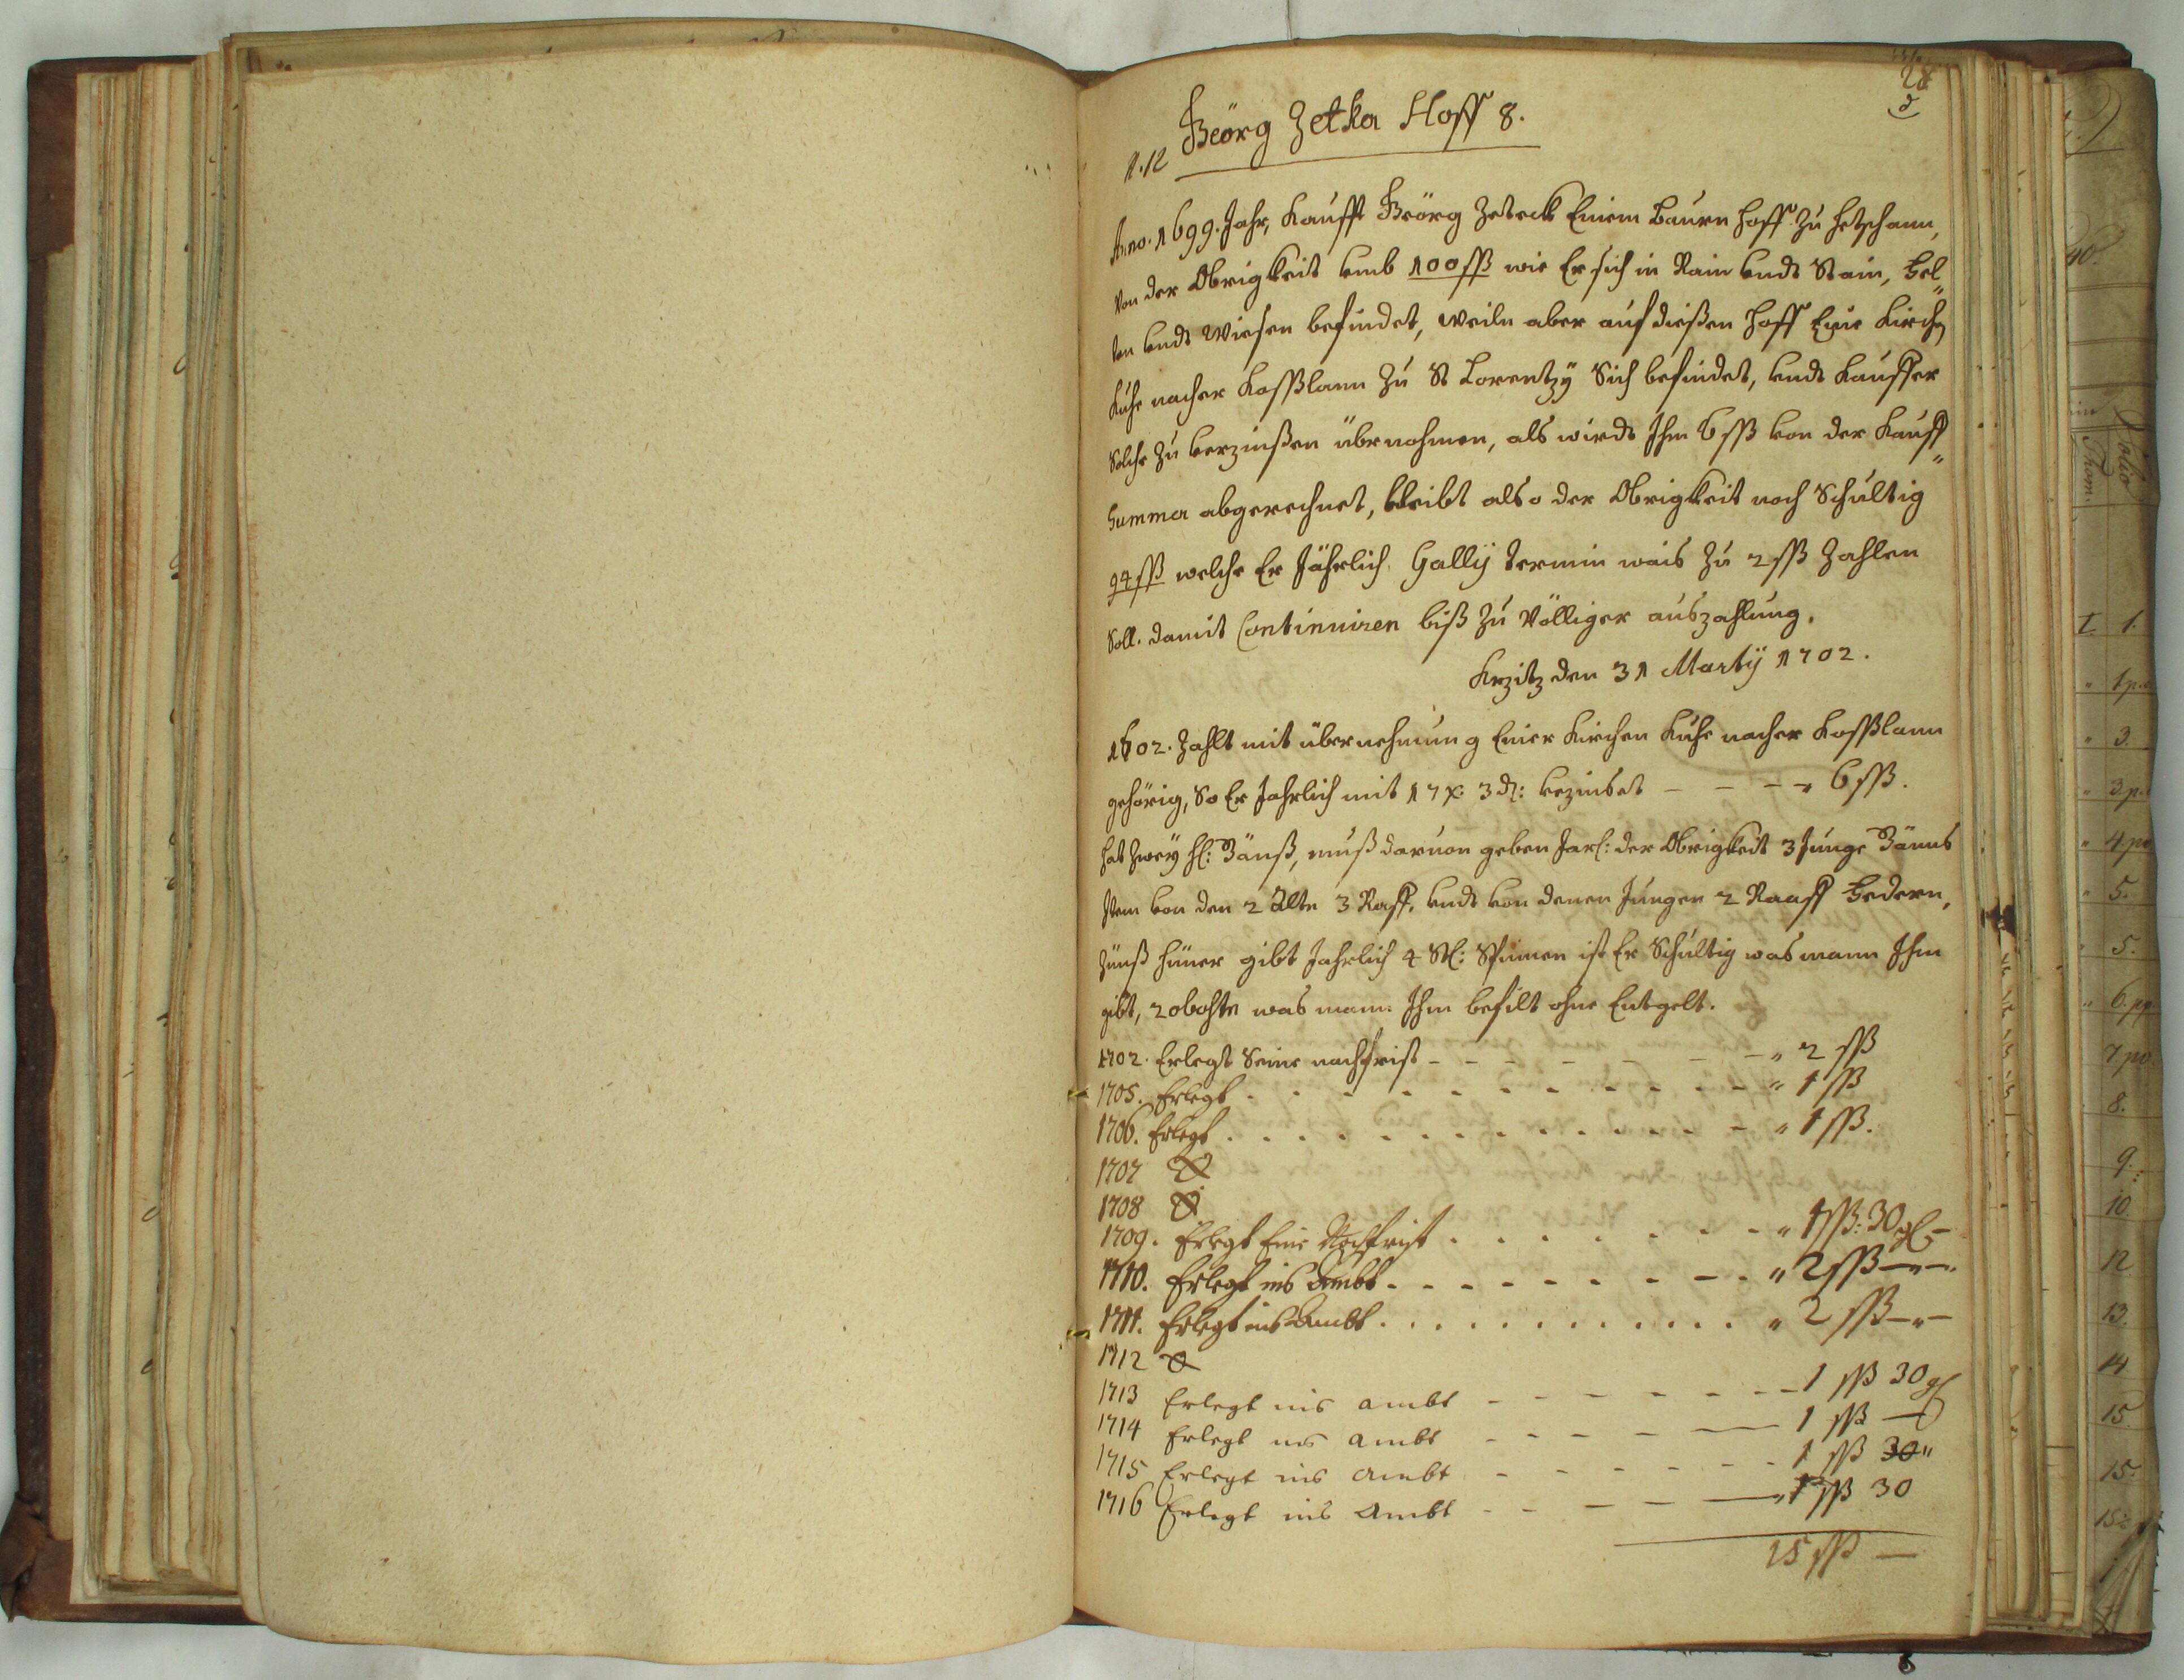 28
N. 12 Georg Zetka Hoff 8.
Anno. 1699. Jahr, Kaufft Geörg Zeteck Einem Bauern Hoff zu Hetschann,
von der Obrigkeit vmb 100 ßß wie Er sich in Rain vndt Stain, Fel„
ten vndt Wiesen befindet, weiln aber auf dießen Hoff Eine Kirchen
Kuhe nacher Koßlann zu St Lorentzÿ Sich befindet, vndt Kauffer
Solche zu verzinßen übernohmen, als wirdt Ihm 6 ßß von der Kauff„
Summa abgerechnet, bleibt also der Obrigkeit noch Schultig
94 ßß welche Er Jährlich Gallÿ Termin wais zu 2 ßß Zahlen
Soll. damit Continuiren biß zu Völliger auszahlung.
Krzitz den 31 Martÿ 1702.
1702. Zahlt mit übernehmung Einer Kirchen Kuhe nacher Koßlann
gehörig, So Er Jahrlich mit 17 x: 3 d: verzinset - - - „ 6 ßß.
hat Zweÿ St: Gänß, muß daruon geben Jarl: der Obrigkeit 3 Junge Gänns
Item von den 2 Alte 3 Raff, vndt von denen Jungen 2 Raaff Federn,
Zünß Hüner gibt Jahrlich 4 St: Spinnen ist Er Schultig was mann Ihm
gibt, Robohte was mann Ihm befilt ohne Entgelt.
1702. Erlegt Seine nachfrist - - - - - - „ 2 ßß
1705. Erlegt . . . . . . . . . . „ 1 ßß
1706. Erlegt . . . . . . . . . . „ 1 ßß.
1707
1708
1709. Erlegt Eine Nachfrist . . . . . . „ 1 ßß: 30 gl -
1710. Erlegt ins Ambt . . . . . . . „ 2 ßß -„-
1711. Erlegt ins Ambt . . . . . . . . . „ 2 ßß -„-
1712
1713 Erlegt ins ambt - - - - - - 1 ßß 30 gl
1714 Erlegt ins ambt - - - - - 1 ßß —
1715 Erlegt ins Ambt - - - - - - 1 ßß 30„
1716 Erlegt ins Ambt - - - - „ 1 ßß 30
15 ßß —
40.
Folio
I. 1.
„ 1 p.
„ 3.
„ 3. p.
„ 4 po
„ 5.
5.
„ 6. pp
7. po.
8.
9.
10.
12
13.
14
15.
15.